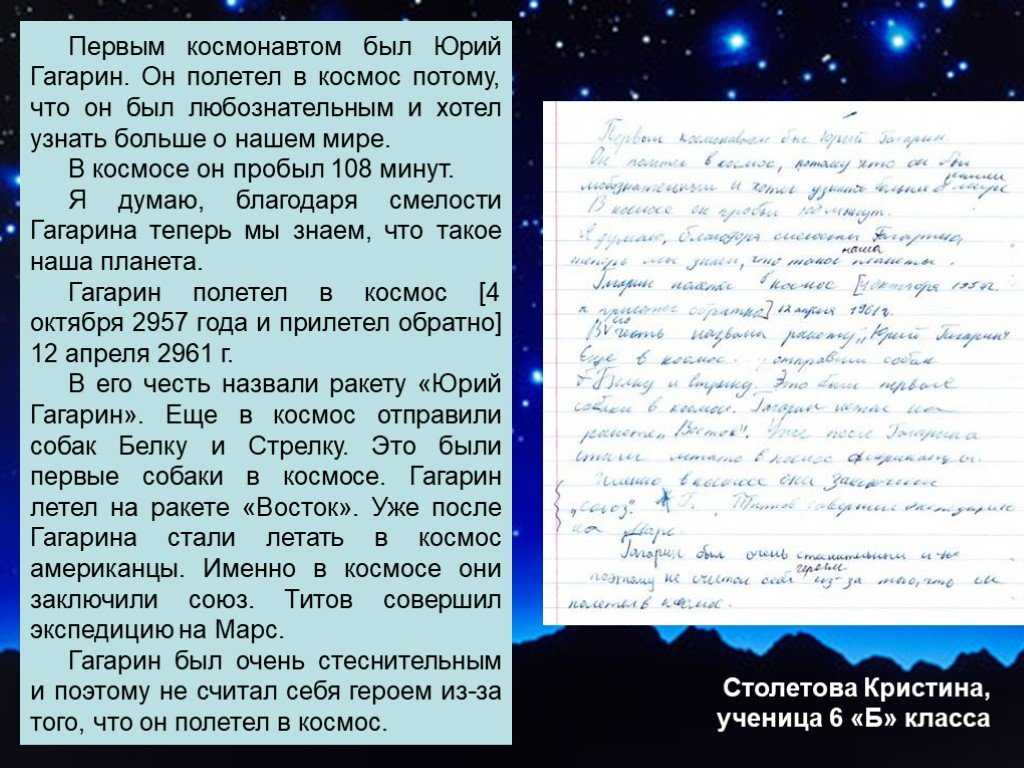 Первым космонавтом был Юрий
Гагарин. Он полетел в космос потому,
что он был любознательным и хотел
узнать больше о нашем мире.
В космосе он пробыл 108 минут.
Я думаю, благодаря смелости
Гагарина теперь мы знаем, что такое
наша планета.
Гагарин полетел в космос [4
октября 2957 года и прилетел обратно]
12 апреля 2961 г.
В его честь назвали ракету «Юрий
Гагарин». Еще в космос отправили
собак Белку и Стрелку. Это были
первые собаки в космосе. Гагарин
летел на ракете «Восток». Уже после
Гагарина стали летать в космос
американцы. Именно в космосе они
заключили союз. Титов совершил
экспедицию на Марс.
Гагарин был очень стеснительным
и поэтому не считал себя героем из-за
того, что он полетел в космос.
Первым космонавтом был Юрий Гагарин.
Он полетел в космос, потому что он был
любознательным и хотел узнать больше о нашем мире
В космосе он пробыл 108 минут.
Я думаю, благодаря смелости Гагарина,
теперь мы знаем, что такое наша планеты.
Гагарин полетел в космос [4 октября 1957г.
и прилетел обратно] 12 апреля 1961г.
В его честь назвали ракету "Юрий Гагарин"
Еще в космос отправили собак
Белку и Стрелку. Это были первые
собаки в космос. Гагарин летал на
ракете "Восток". Уже после Гагарина
стали летать в космос американцы.
Именно в космосе они заключили
"союз". Г. Титов совершил экспедицию
на Марс.
Гагарин был очень стеснительным и
поэтому не считал себя героем из-за того, что он
полетел в космос.
Столетова Кристина,
ученица 6 «Б» класса